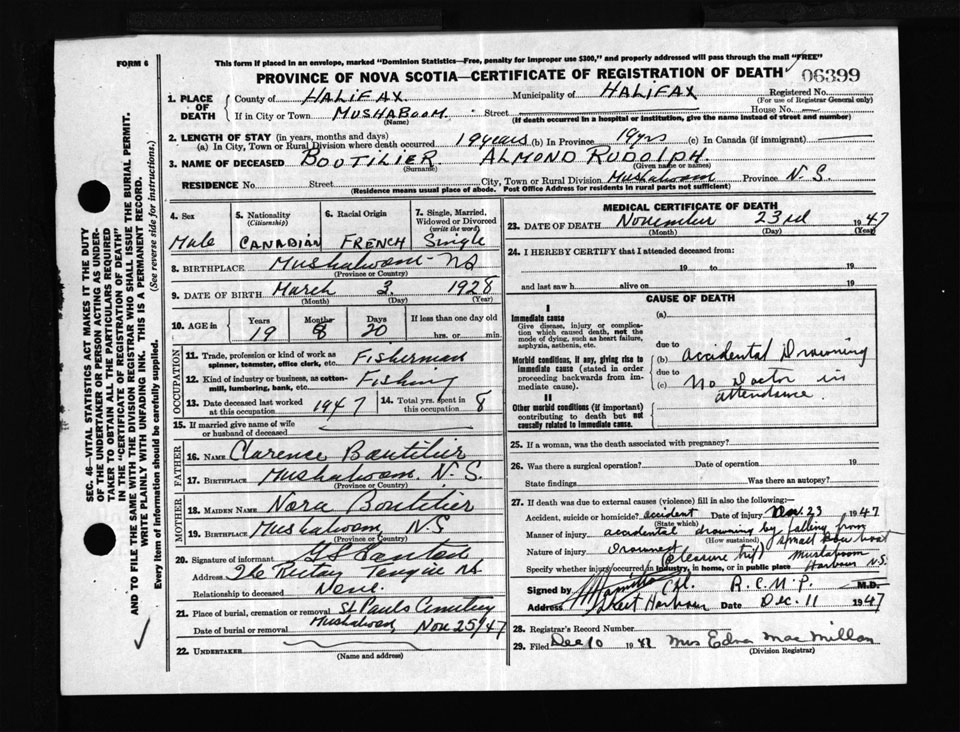 FORM 6
This form if placed in an envelope, marked "Dominion Statistics—Free, penalty for improper use $300," and properly addressed will pass through the mail "FREE"
PROVINCE OF NOVA SCOTIA—CERTIFICATE OF REGISTRATION OF DEATH
06399
1. PLACE OF DEATH
County of HALIFAX
Municipality of HALIFAX
Registered No.
(For use of Registrar General only)
If in City or Town MUSHABOOM. Street House No —
(Name) (If death occurred in a hospital or institution, give the name instead of street and number)
2. LENGTH OF STAY (in years, months and days)
(a) In City, Town or Rural Division where death occurred 19 years (b) In Province 19 yrs (c) In Canada (if immigrant)
3. NAME OF DECEASED BOUTILIER. ALMOND RUDOLPH.
(Surname) (Given name or names)
RESIDENCE No. Street City, Town or Rural Division Mushaboom Province N.S.
(Residence means usual place of abode. Post Office Address for residents in rural parts not sufficient)
SEC. 46—VITAL STATISTICS ACT MAKES IT THE DUTY
OF THE UNDERTAKER OR PERSON ACTING AS UNDER-
TAKER TO OBTAIN ALL THE PARTICULARS REQUIRED
IN THE "CERTIFICATE OF REGISTRATION OF DEATH"
AND TO FILE THE SAME WITH THE DIVISION REGISTRAR WHO SHALL ISSUE THE BURIAL PERMIT.
WRITE PLAINLY WITH UNFADING INK. THIS IS A PERMANENT RECORD.
Every item of information should be carefully supplied. (See reverse side for instructions.)
4. Sex
Male
5. Nationality
(Citizenship)
CANADIAN
6. Racial Origin
FRENCH
7. Single, Married,
Widowed or Divorced
(write the word)
Single
8. BIRTHPLACE Mushaboom - NS
(Province or Country)
9. DATE OF BIRTH March 3. 1928
(Month) (Day) (Year)
10. AGE in
Years Months Days If less than one day old
19 8 20 hrs. or min.
OCCUPATION
11. Trade, profession or kind of work as
spinner, teamster, office clerk, etc. Fisherman
12. Kind of industry or business, as cotton-
mill, lumbering, bank, etc. Fishing
13. Date deceased last worked
at this occupation 1947
14. Total yrs. spent in
this occupation 8
15. If married give name of wife
or husband of deceased
FATHER
16. Name Clarence Boutilier
17. Birthplace Mushaboom. N.S.
(Province or Country)
MOTHER
18. Maiden Name Nora Boutilier
19. Birthplace Mushaboom, N.S
(Province or Country)
20. Signature of informant
Address The Rectory Tangier NS
Relationship to deceased None.
21. Place of burial, cremation or removal St Pauls Cemetery
Mushaboom
Date of burial or removal Nov 25/47
22. UNDERTAKER
(Name and Address)
MEDICAL CERTIFICATE OF DEATH
23. DATE OF DEATH November 23rd 1947
(Month) (Day) (Year)
24. I HEREBY CERTIFY that I attended deceased from:
19 to 19
and last saw h alive on 19
CAUSE OF DEATH
I
Immediate cause
Give disease, injury or complica-
tion which caused death, not the
mode of dying, such as heart failure,
asphyxia, asthenia, etc.
(a)
due to
Morbid conditions, if any, giving rise to
immediate cause (stated in order
proceeding backwards from im-
mediate cause).
(b) accidental Drowning
due to
(c) No Doctor in
attendance.
II
Other morbid conditions (if important)
contributing to death but not
causally related to immediate cause.
25. If a woman, was the death associated with pregnancy?
26. Was there a surgical operation? Date of operation 19
State findings Was there an autopsy?
27. If death was due to external causes (violence) fill in also the following:—
Accident, suicide or homicide? accident Date of injury Nov. 23 1947
(State which)
Manner of injury accidental drowning by falling from
(How sustained) small row boat
Nature of injury Drowned (Pleasure trip) Mushaboom
Specify whether injury occurred in industry, in home, or in public place Harbour N.S.
Signed by Hamilton Cpl. R.C.M.P. M.D.
Address Sheet Harbour Date Dec. 11 1947
28. Registrar's Record Number
29. Filed Dec 10 1947 Mrs Edna MacMillan
(Division Registrar)